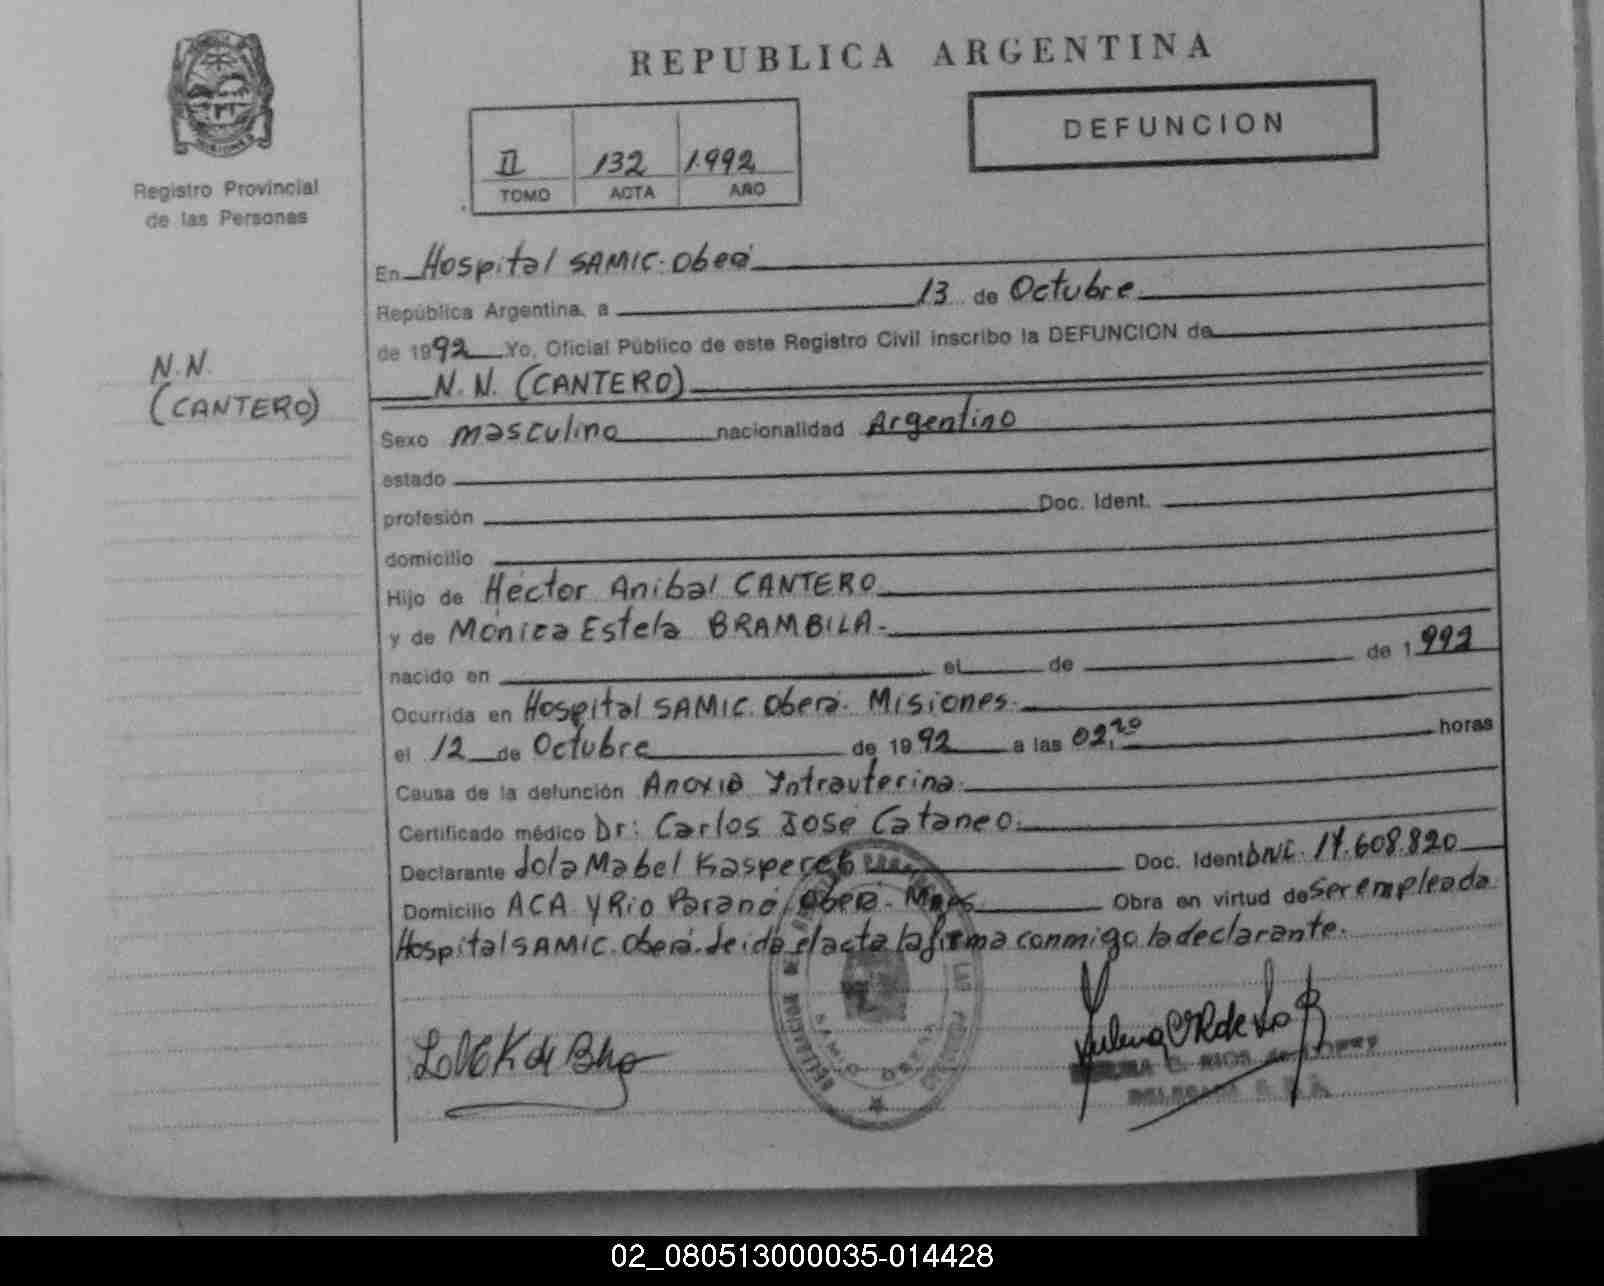 REPUBLICA ARGENTINA
DEFUNCION
II 132 1.992
TOMO ACTA AÑO
Registro Provincial
de las Personas
N.N.
(CANTERO)
En Hospital SAMIC. Oberá
República Argentina, a 13 de Octubre
de 1992 Yo, Oficial Público de este Registro Civil inscribo la DEFUNCION de
N. N. (CANTERO)
Sexo masculino nacionalidad Argentino
estado
profesión Doc. Ident.
domicilio
Hijo de Héctor Anibal CANTERO
y de Mónica Estela BRAMBILA.
nacido en el de de 1992
Ocurrida en Hospital SAMIC. Oberá. Misiones.
el 12 de Octubre de 1992 a las 02,20 horas
Causa de la defunción Anoxia Yntrauterina.
Certificado médico Dr: Carlos José Cataneo.
Declarante Mabel Doc. Ident DNI. 17.608.820
Domicilio ACA y Rio Paraná, Oberá. Mnes. Obra en virtud de ser empleada
Hospital SAMIC. Oberá. Leida el acta la firma conmigo la declarante.
SAMIC OBERA
C. RIOS de
02_080513000035-014428